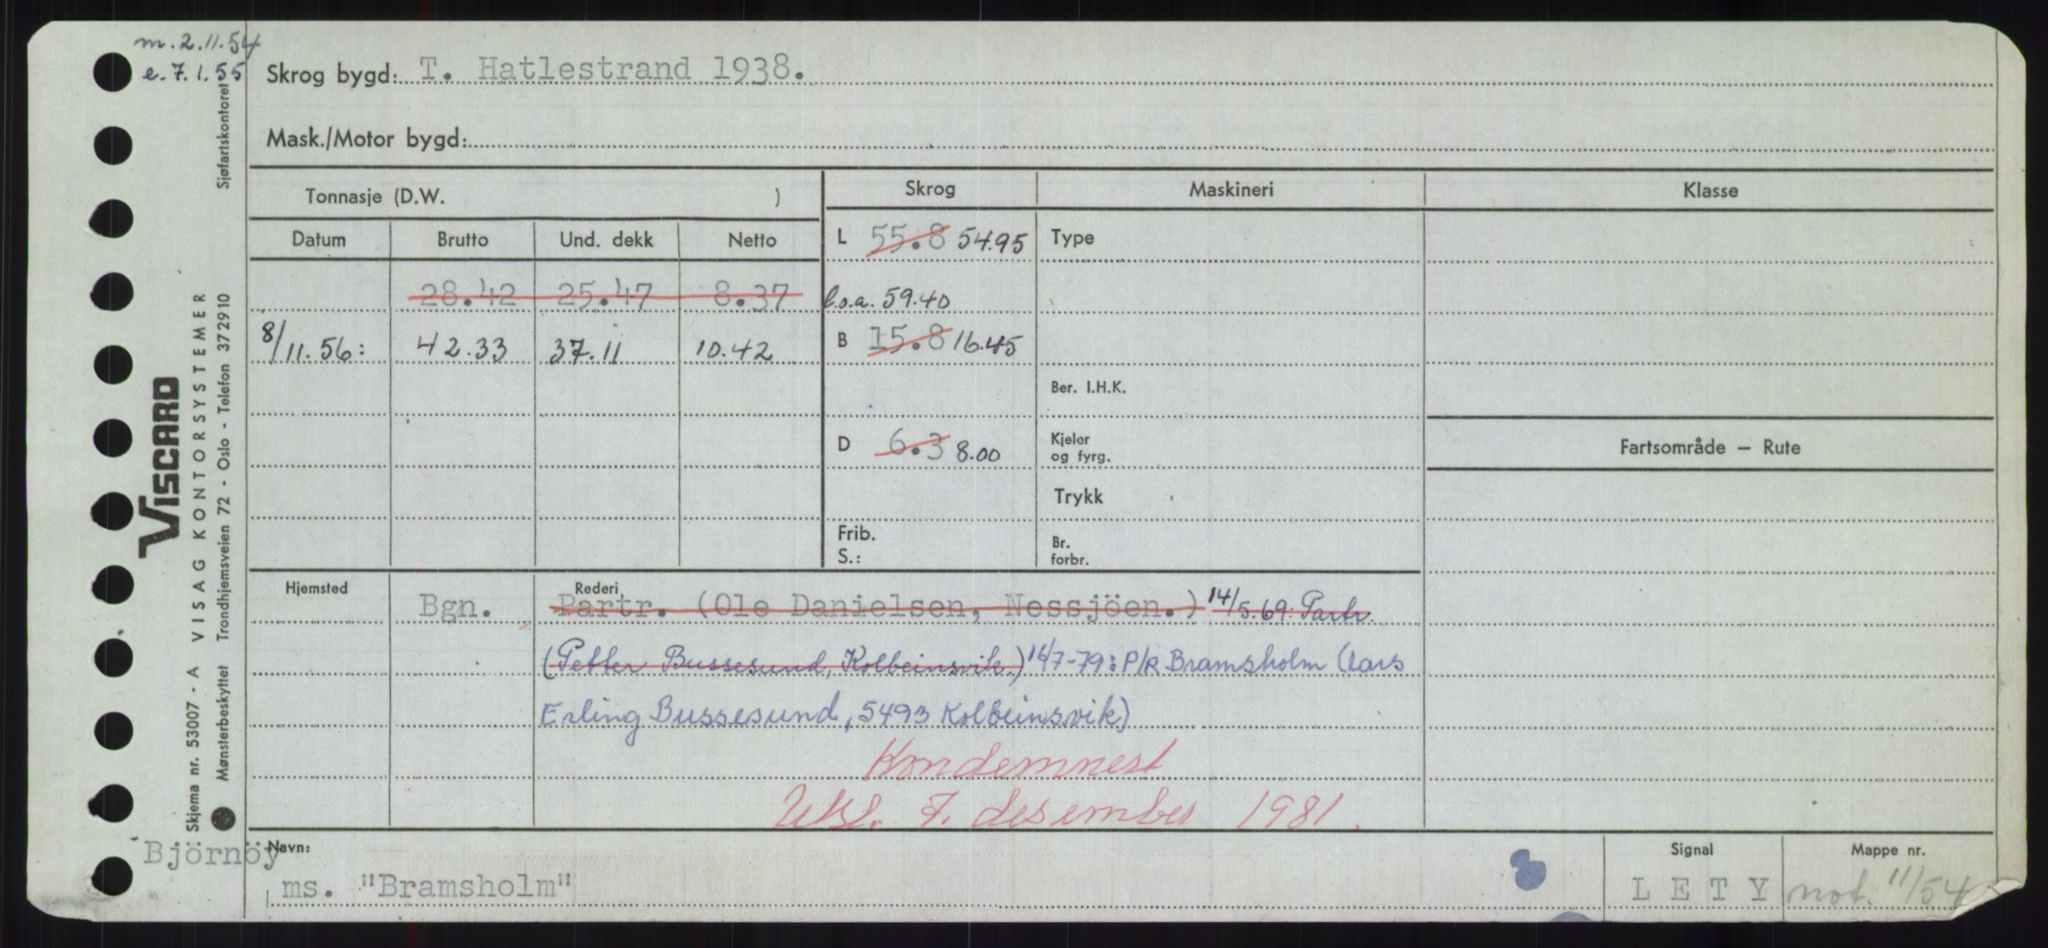 m. 2.11.54
e. 7.1.55
Skrog bygd: T. Hatlestrand 1938.
Mask./Motor bygd:
Sjøfartskontoret
Tonnasje (D.W. )
Skrog
Maskineri
Klasse
Datum Brutto Und. dekk Netto
L 55.8 54.95
Type
28.42 25.47 8.37
l.o.a. 59.40
8/11.56: 42.33 37.11 10.42
B 15.8 16.45
Ber. I.H.K.
D 6.3 8.00
Kjeler
og fyrg.
Fartsområde — Rute
Trykk
Frib.
S.:
Br.
forbr.
Hjemsted
Rederi
Bgn. Partr. (Ole Danielsen, Nessjöen.) 14/5.69: Partr.
(Petter Bussesund, Kolbeinsvik.) 16/7-79: P/R Bramsholm (Lars
Erling Bussesund, 5493 Kolbeinsvik)
Kondemnert
Utsl. 7. desember 1981.
Björnöy
Navn:
ms. "Bramsholm"
Signal
LETY
Mappe nr.
not. 11/54
VISCARD
VISAG KONTORSYSTEMER
Skjema nr. 53007 - A
Mønsterbeskyttet Trondhjemsveien 72 - Oslo - Telefon 372910